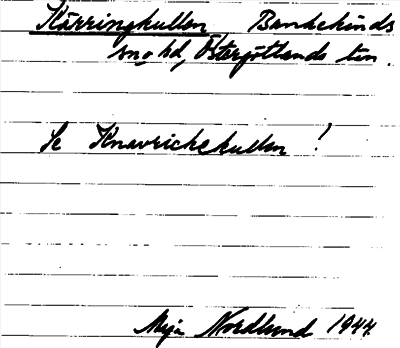 Kärringkullen Bankekinds
sn o hd, Östergötlands län.
Se Knavrickekullen!
Maja Nordlund 1944